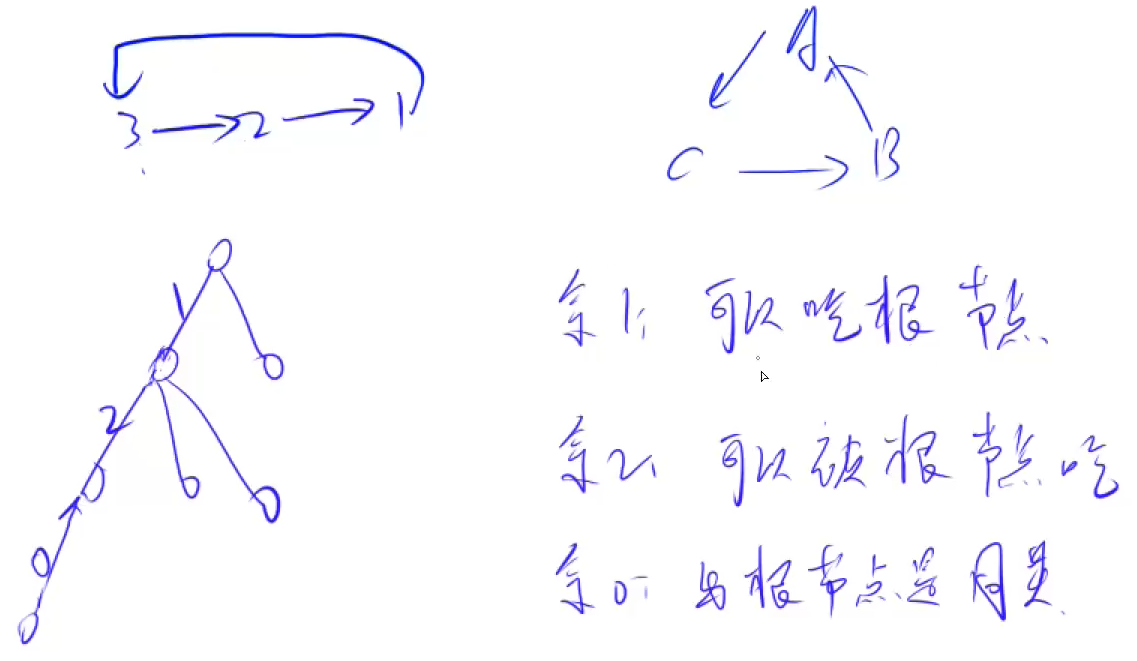 3 → 2 → 1
A
C → B
1
2
0
余1: 可以吃根节点
余2: 可以被根节点吃
余0: 与根节点是同类